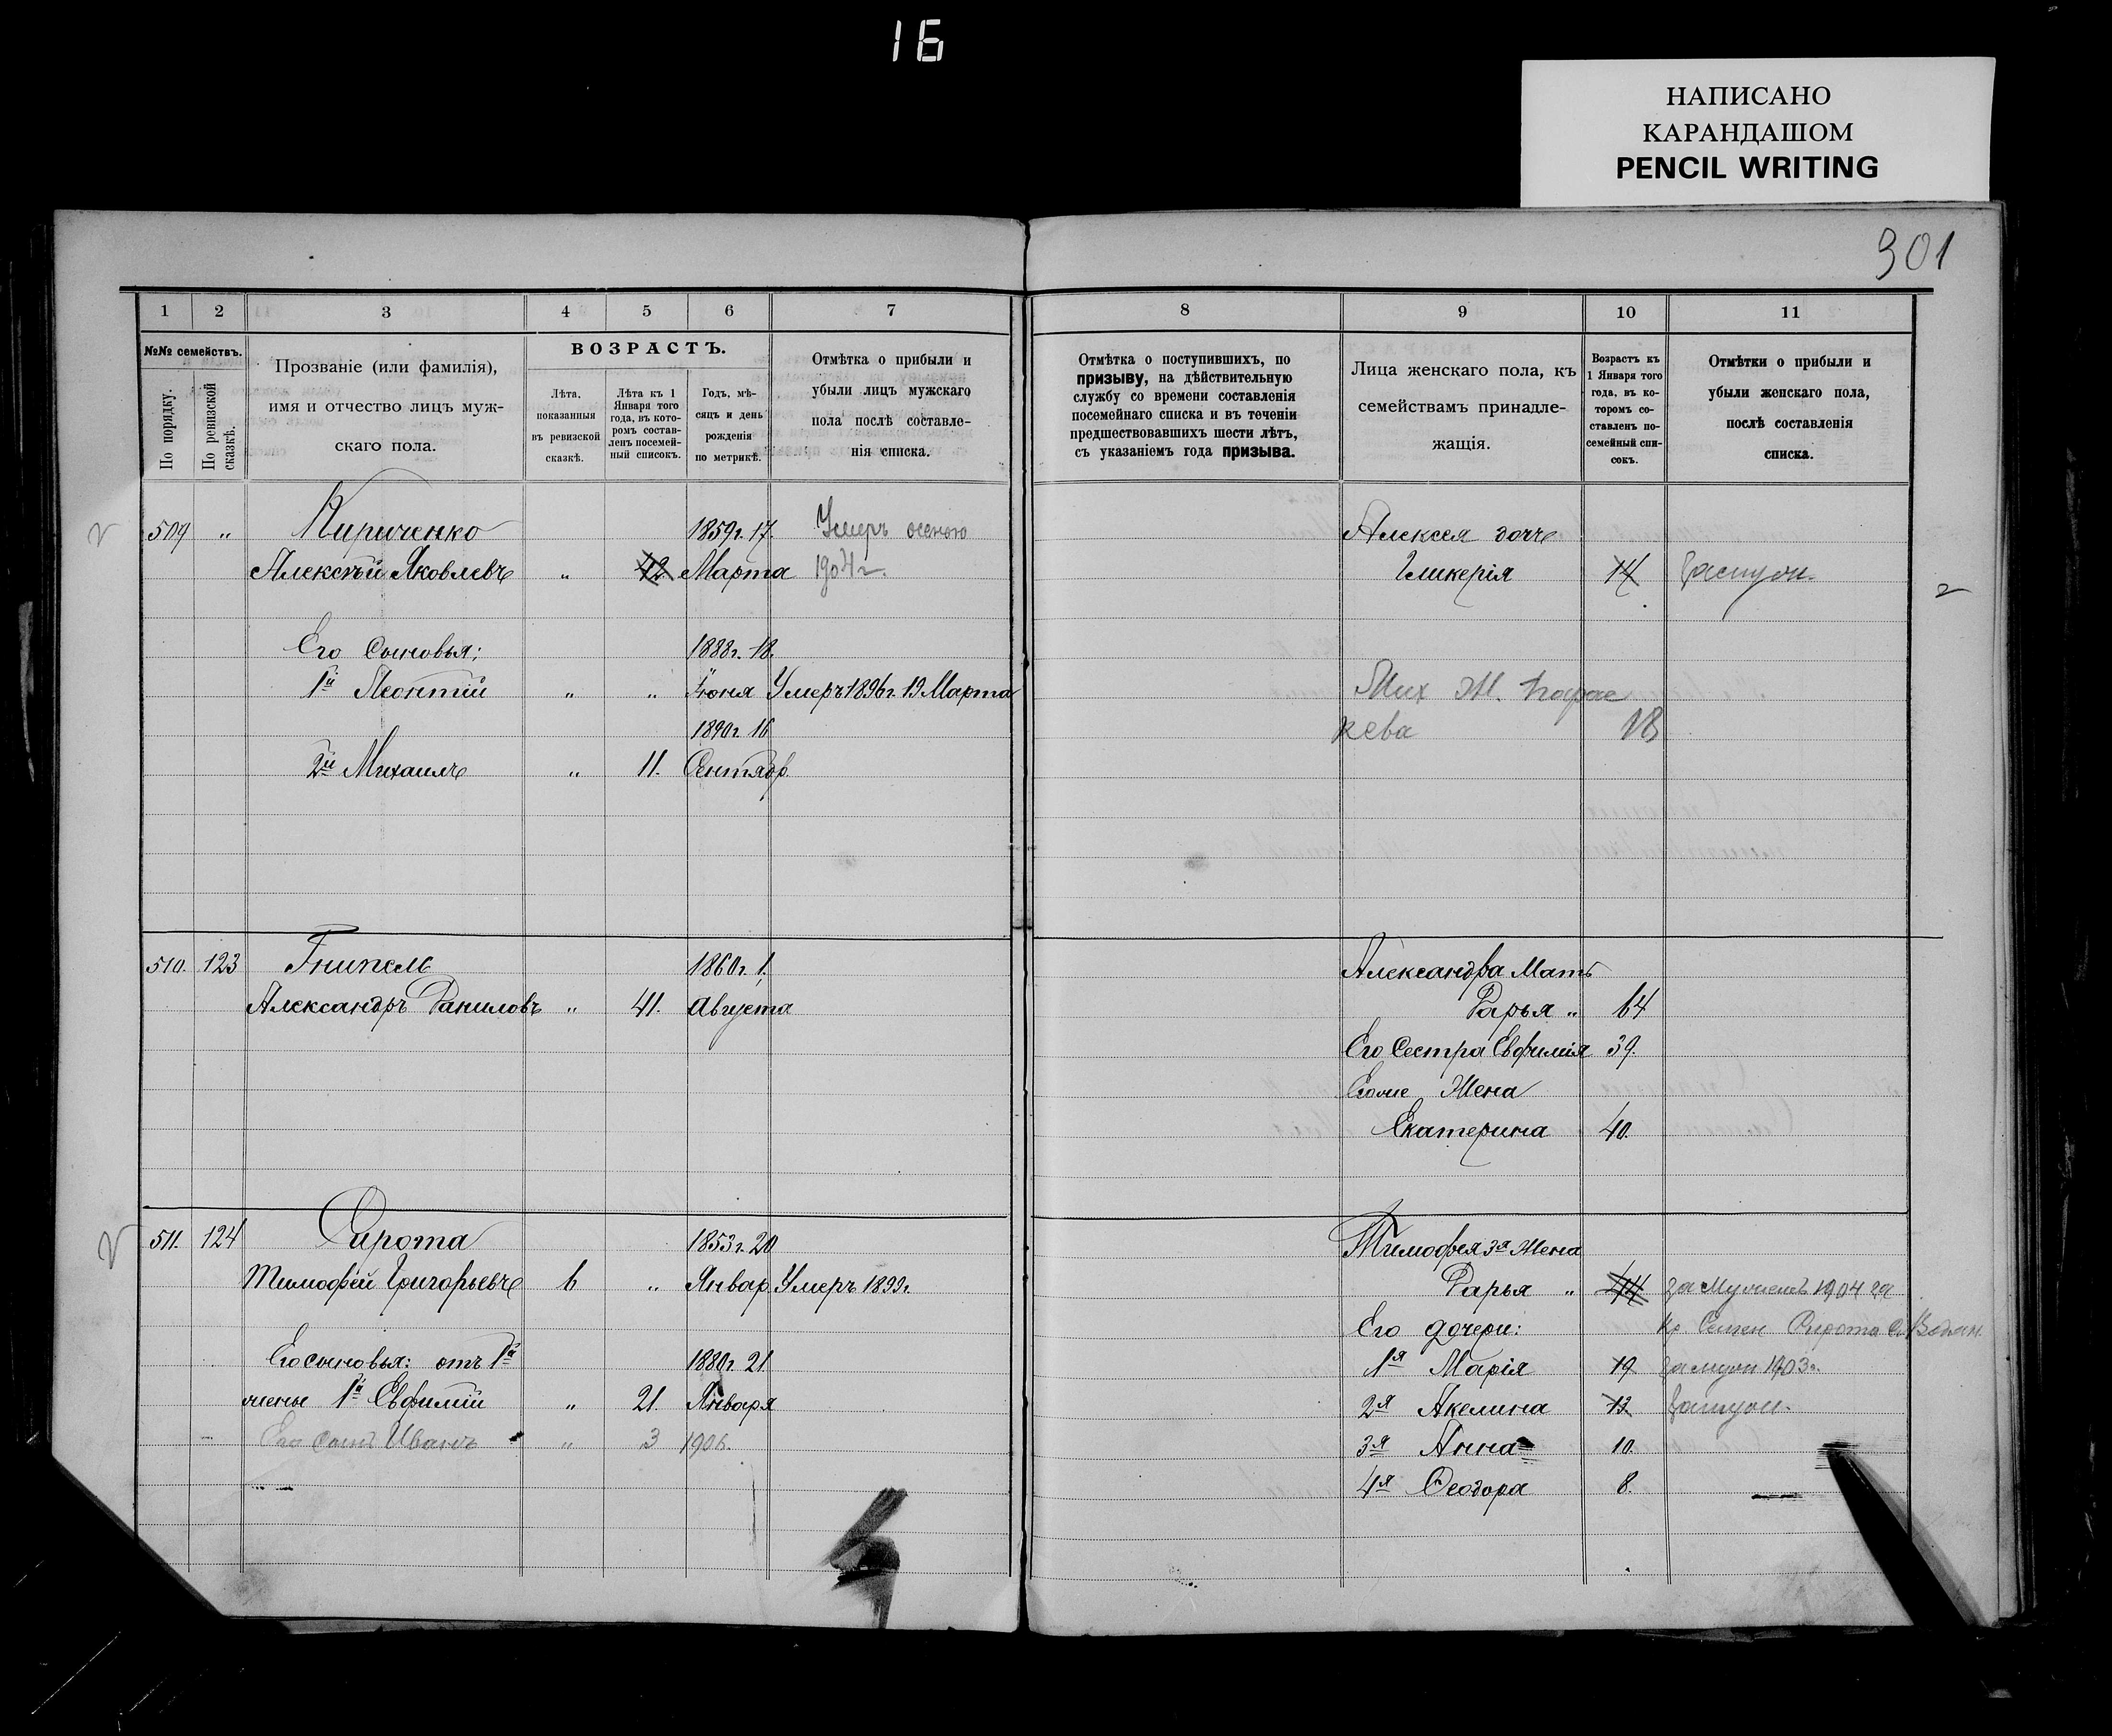 16
НАПИСАНО
КАРАНДАШОМ
PENCIL WRITING
301
1 2 3 4 5 6 7
№№ семействъ.
По порядку.
По ревизской сказкѣ.
Прозваніе (или фамилія),
имя и отчество лицъ муж-
скаго пола.
ВОЗРАСТЪ.
Лѣта,
показанныя
въ ревизской
сказкѣ.
Лѣта къ 1
Января того
года, въ кото-
ромъ состав-
ленъ посемей-
ный списокъ.
Годъ, мѣ-
сяцъ и день
рожденія
по метрикѣ.
Отмѣтка о прибыли и
убыли лицъ мужскаго
пола послѣ составле-
нія списка.
509 " Кириченко 1859г. 17. Умеръ осенью
Алексѣй Яковлевъ " 42 Марта 1904 г.
Его Сыновья; 1888г. 18.
1й Леонтій " " Іюня Умеръ 1896г. 19 Марта
1890г. 16
2й Михаилъ " 11. Сентябр.
510. 123 Гнипель 1860г. 1.
Александръ Даниловъ " 41. Августа
511. 124 Сирота 1853г. 20
Тимофѣй Григорьевъ 6 " Январ. Умеръ 1899г.
Его сыновья: отъ 1й 1880г. 21
жены 1й Евфимій " 21. Января
Его сынъ Иванъ " 3 1906.
8 9 10 11
Отмѣтка о поступившихъ, по
призыву, на дѣйствительную
службу со времени составленія
посемейнаго списка и въ теченіи
предшествовавшихъ шести лѣтъ,
съ указаніемъ года призыва.
Лица женскаго пола, къ
семействамъ принадле-
жащія.
Возрастъ къ
1 Января того
года, въ ко-
торомъ со-
ставленъ по-
семейный спи-
сокъ.
Отмѣтки о прибыли и
убыли женскаго пола,
послѣ составленія
списка.
Алексея дочь
Гликерія 14 Замуж.
Мих Ж. Парас
кева 18
Александра Мать
Дарья " 64
Его Сестра Евфимія 39.
Егоже Жена
Екатерина 40.
Тимофея 3я Жена
Дарья " 44 за Мужемъ 1904
Его дочери: Кр Семен Сирота
1я Марія 19 замуж 1903г.
2я Акелина 13 Замуж.
3я Анна 10.
4я Феодора 8.